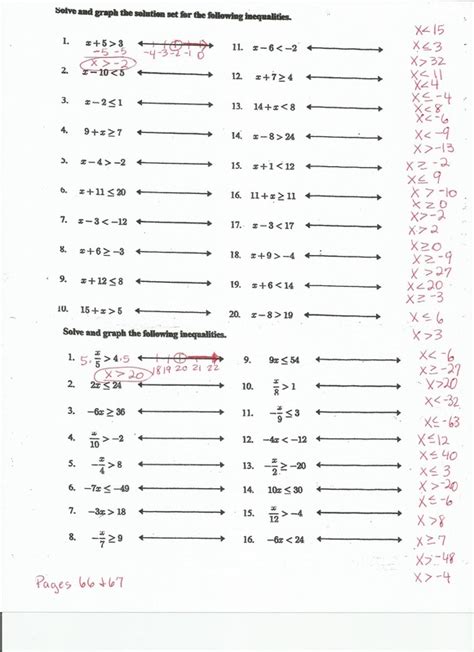 Solve and graph the solution set for the following inequalities.
1. x + 5 > 3
-5 -5
-4 -3 -2 -1 0
x > -2
2. x − 10 < 5
3. x − 2 ≤ 1
4. 9 + x ≥ 7
5. x − 4 > −2
6. x + 11 ≤ 20
7. x − 3 < −12
8. x + 6 ≥ −3
9. x + 12 ≤ 8
10. 15 + x > 5
11. x − 6 < −2
12. x + 7 ≥ 4
13. 14 + x < 8
14. x − 8 > 24
15. x + 1 < 12
16. 11 + x ≥ 11
17. x − 3 < 17
18. x + 9 > −4
19. x + 6 < 14
20. x − 8 > 19
Solve and graph the following inequalities.
1. 5· x/5 > 4 ·5
18 19 20 21 22
x > 20
2. 2x ≤ 24
3. −6x ≥ 36
4. x/10 > −2
5. −x/4 > 8
6. −7x ≤ −49
7. −3x > 18
8. −x/7 ≥ 9
9. 9x ≤ 54
10. x/8 > 1
11. −x/9 ≤ 3
12. −4x < −12
13. −x/2 ≥ −20
14. 10x ≤ 30
15. x/12 > −4
16. −6x < 24
x < 15
x ≤ 3
x > 32
x < 11
x < 4
x ≤ -4
x < 8
x < -6
x < -9
x > -13
x ≥ -2
x ≤ 9
x > -10
x ≥ 0
x > -2
x > 2
x ≥ 0
x ≥ -9
x > 27
x < 20
x ≥ -3
x ≤ 6
x > 3
x < -6
x ≥ -27
x > 20
x < -32
x ≤ -63
x ≤ 12
x ≤ 40
x ≤ 3
x > -20
x ≤ -6
x > 8
x ≥ 7
x > -48
x > -4
Pages 66 + 67